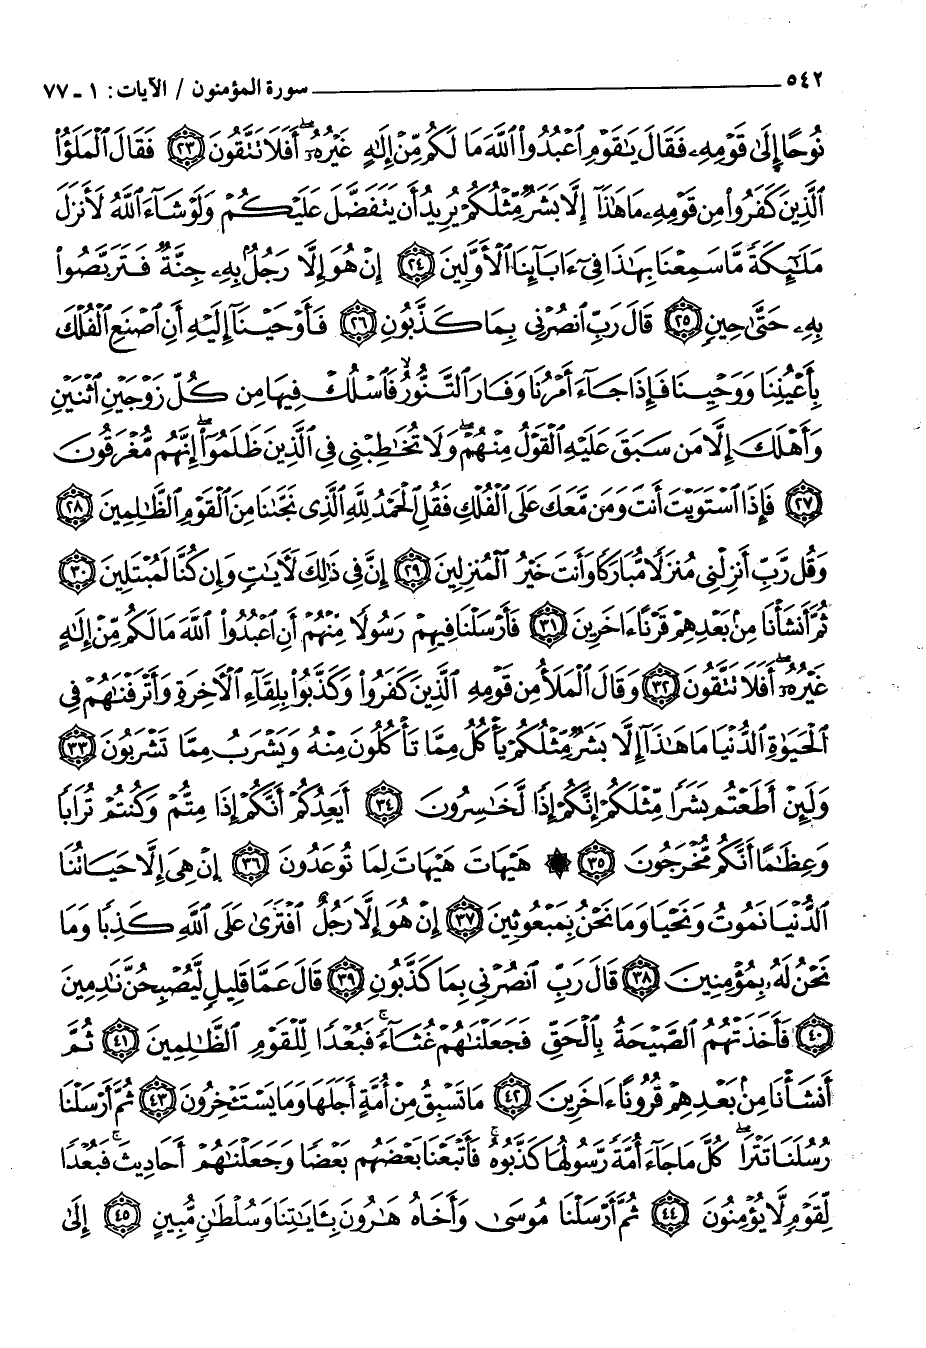 ٥٤٢ سورة المؤمنون / الآيات: ١ - ٧٧
نُوحًا إِلَىٰ قَوْمِهِۦ فَقَالَ يَٰقَوْمِ ٱعْبُدُوا۟ ٱللَّهَ مَا لَكُم مِّنْ إِلَٰهٍ غَيْرُهُۥٓ ۖ أَفَلَا تَتَّقُونَ ﴿٢٣﴾ فَقَالَ ٱلْمَلَؤُا۟
ٱلَّذِينَ كَفَرُوا۟ مِن قَوْمِهِۦ مَا هَٰذَآ إِلَّا بَشَرٌ مِّثْلُكُمْ يُرِيدُ أَن يَتَفَضَّلَ عَلَيْكُمْ وَلَوْ شَآءَ ٱللَّهُ لَأَنزَلَ
مَلَٰٓئِكَةً مَّا سَمِعْنَا بِهَٰذَا فِىٓ ءَابَآئِنَا ٱلْأَوَّلِينَ ﴿٢٤﴾ إِنْ هُوَ إِلَّا رَجُلٌۢ بِهِۦ جِنَّةٌ فَتَرَبَّصُوا۟
بِهِۦ حَتَّىٰ حِينٍ ﴿٢٥﴾ قَالَ رَبِّ ٱنصُرْنِى بِمَا كَذَّبُونِ ﴿٢٦﴾ فَأَوْحَيْنَآ إِلَيْهِ أَنِ ٱصْنَعِ ٱلْفُلْكَ
بِأَعْيُنِنَا وَوَحْيِنَا فَإِذَا جَآءَ أَمْرُنَا وَفَارَ ٱلتَّنُّورُ ۙ فَٱسْلُكْ فِيهَا مِن كُلٍّ زَوْجَيْنِ ٱثْنَيْنِ
وَأَهْلَكَ إِلَّا مَن سَبَقَ عَلَيْهِ ٱلْقَوْلُ مِنْهُمْ ۖ وَلَا تُخَٰطِبْنِى فِى ٱلَّذِينَ ظَلَمُوٓا۟ ۖ إِنَّهُم مُّغْرَقُونَ
﴿٢٧﴾ فَإِذَا ٱسْتَوَيْتَ أَنتَ وَمَن مَّعَكَ عَلَى ٱلْفُلْكِ فَقُلِ ٱلْحَمْدُ لِلَّهِ ٱلَّذِى نَجَّىٰنَا مِنَ ٱلْقَوْمِ ٱلظَّٰلِمِينَ ﴿٢٨﴾
وَقُل رَّبِّ أَنزِلْنِى مُنزَلًا مُّبَارَكًا وَأَنتَ خَيْرُ ٱلْمُنزِلِينَ ﴿٢٩﴾ إِنَّ فِى ذَٰلِكَ لَءَايَٰتٍ وَإِن كُنَّا لَمُبْتَلِينَ ﴿٣٠﴾
ثُمَّ أَنشَأْنَا مِنۢ بَعْدِهِمْ قَرْنًا ءَاخَرِينَ ﴿٣١﴾ فَأَرْسَلْنَا فِيهِمْ رَسُولًا مِّنْهُمْ أَنِ ٱعْبُدُوا۟ ٱللَّهَ مَا لَكُم مِّنْ إِلَٰهٍ
غَيْرُهُۥٓ ۖ أَفَلَا تَتَّقُونَ ﴿٣٢﴾ وَقَالَ ٱلْمَلَأُ مِن قَوْمِهِ ٱلَّذِينَ كَفَرُوا۟ وَكَذَّبُوا۟ بِلِقَآءِ ٱلْءَاخِرَةِ وَأَتْرَفْنَٰهُمْ فِى
ٱلْحَيَوٰةِ ٱلدُّنْيَا مَا هَٰذَآ إِلَّا بَشَرٌ مِّثْلُكُمْ يَأْكُلُ مِمَّا تَأْكُلُونَ مِنْهُ وَيَشْرَبُ مِمَّا تَشْرَبُونَ ﴿٣٣﴾
وَلَئِنْ أَطَعْتُم بَشَرًا مِّثْلَكُمْ إِنَّكُمْ إِذًا لَّخَٰسِرُونَ ﴿٣٤﴾ أَيَعِدُكُمْ أَنَّكُمْ إِذَا مِتُّمْ وَكُنتُمْ تُرَابًا
وَعِظَٰمًا أَنَّكُم مُّخْرَجُونَ ﴿٣٥﴾ ۞ هَيْهَاتَ هَيْهَاتَ لِمَا تُوعَدُونَ ﴿٣٦﴾ إِنْ هِىَ إِلَّا حَيَاتُنَا
ٱلدُّنْيَا نَمُوتُ وَنَحْيَا وَمَا نَحْنُ بِمَبْعُوثِينَ ﴿٣٧﴾ إِنْ هُوَ إِلَّا رَجُلٌ ٱفْتَرَىٰ عَلَى ٱللَّهِ كَذِبًا وَمَا
نَحْنُ لَهُۥ بِمُؤْمِنِينَ ﴿٣٨﴾ قَالَ رَبِّ ٱنصُرْنِى بِمَا كَذَّبُونِ ﴿٣٩﴾ قَالَ عَمَّا قَلِيلٍ لَّيُصْبِحُنَّ نَٰدِمِينَ
﴿٤٠﴾ فَأَخَذَتْهُمُ ٱلصَّيْحَةُ بِٱلْحَقِّ فَجَعَلْنَٰهُمْ غُثَآءً ۚ فَبُعْدًا لِّلْقَوْمِ ٱلظَّٰلِمِينَ ﴿٤١﴾ ثُمَّ
أَنشَأْنَا مِنۢ بَعْدِهِمْ قُرُونًا ءَاخَرِينَ ﴿٤٢﴾ مَا تَسْبِقُ مِنْ أُمَّةٍ أَجَلَهَا وَمَا يَسْتَـْٔخِرُونَ ﴿٤٣﴾ ثُمَّ أَرْسَلْنَا
رُسُلَنَا تَتْرَا ۖ كُلَّ مَا جَآءَ أُمَّةً رَّسُولُهَا كَذَّبُوهُ ۚ فَأَتْبَعْنَا بَعْضَهُم بَعْضًا وَجَعَلْنَٰهُمْ أَحَادِيثَ ۚ فَبُعْدًا
لِّقَوْمٍ لَّا يُؤْمِنُونَ ﴿٤٤﴾ ثُمَّ أَرْسَلْنَا مُوسَىٰ وَأَخَاهُ هَٰرُونَ بِـَٔايَٰتِنَا وَسُلْطَٰنٍ مُّبِينٍ ﴿٤٥﴾ إِلَىٰ